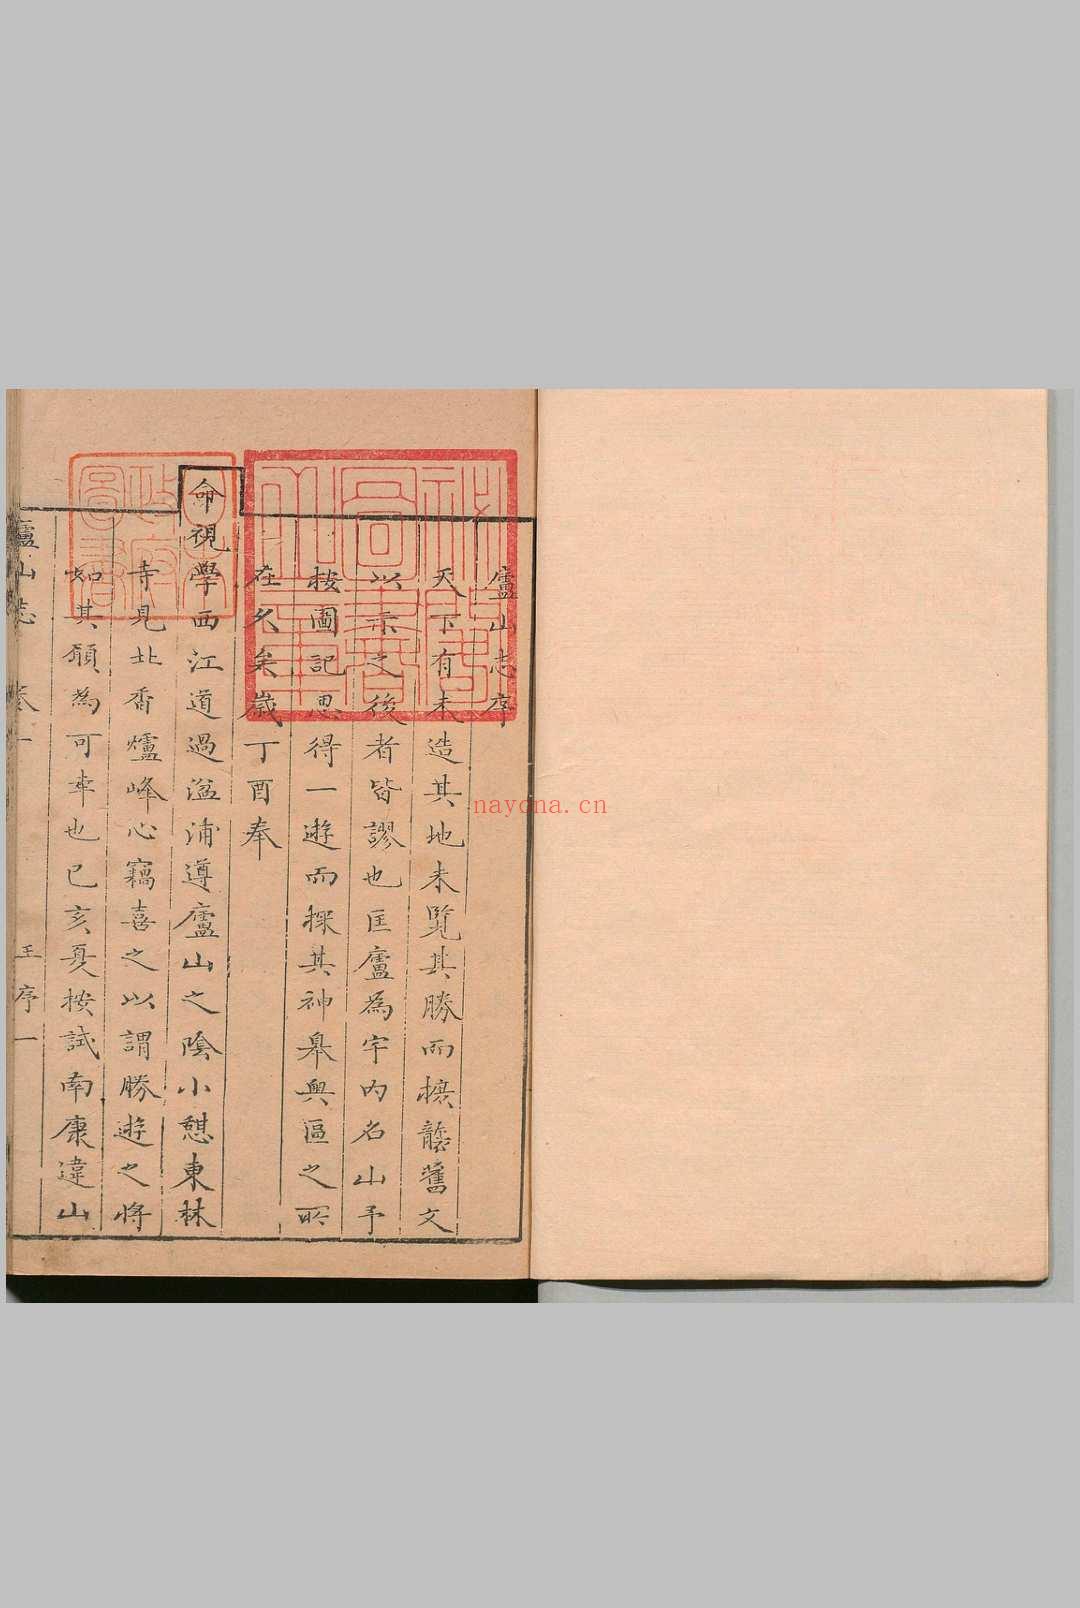 廬山志序
天下有未造其地未覽其勝而摭䪥舊文
以示之後者皆謬也匡廬為宇內名山予
按圖記思得一遊而探其神皋奧區之所
在久矣歲丁酉奉
命視學西江道過湓浦遵廬山之陰小憩東林
寺見北香爐峰心竊喜之以謂勝遊之將
如其願為可幸也已亥夏按試南康違山
廬山志 卷一 王序一
nayona.cn